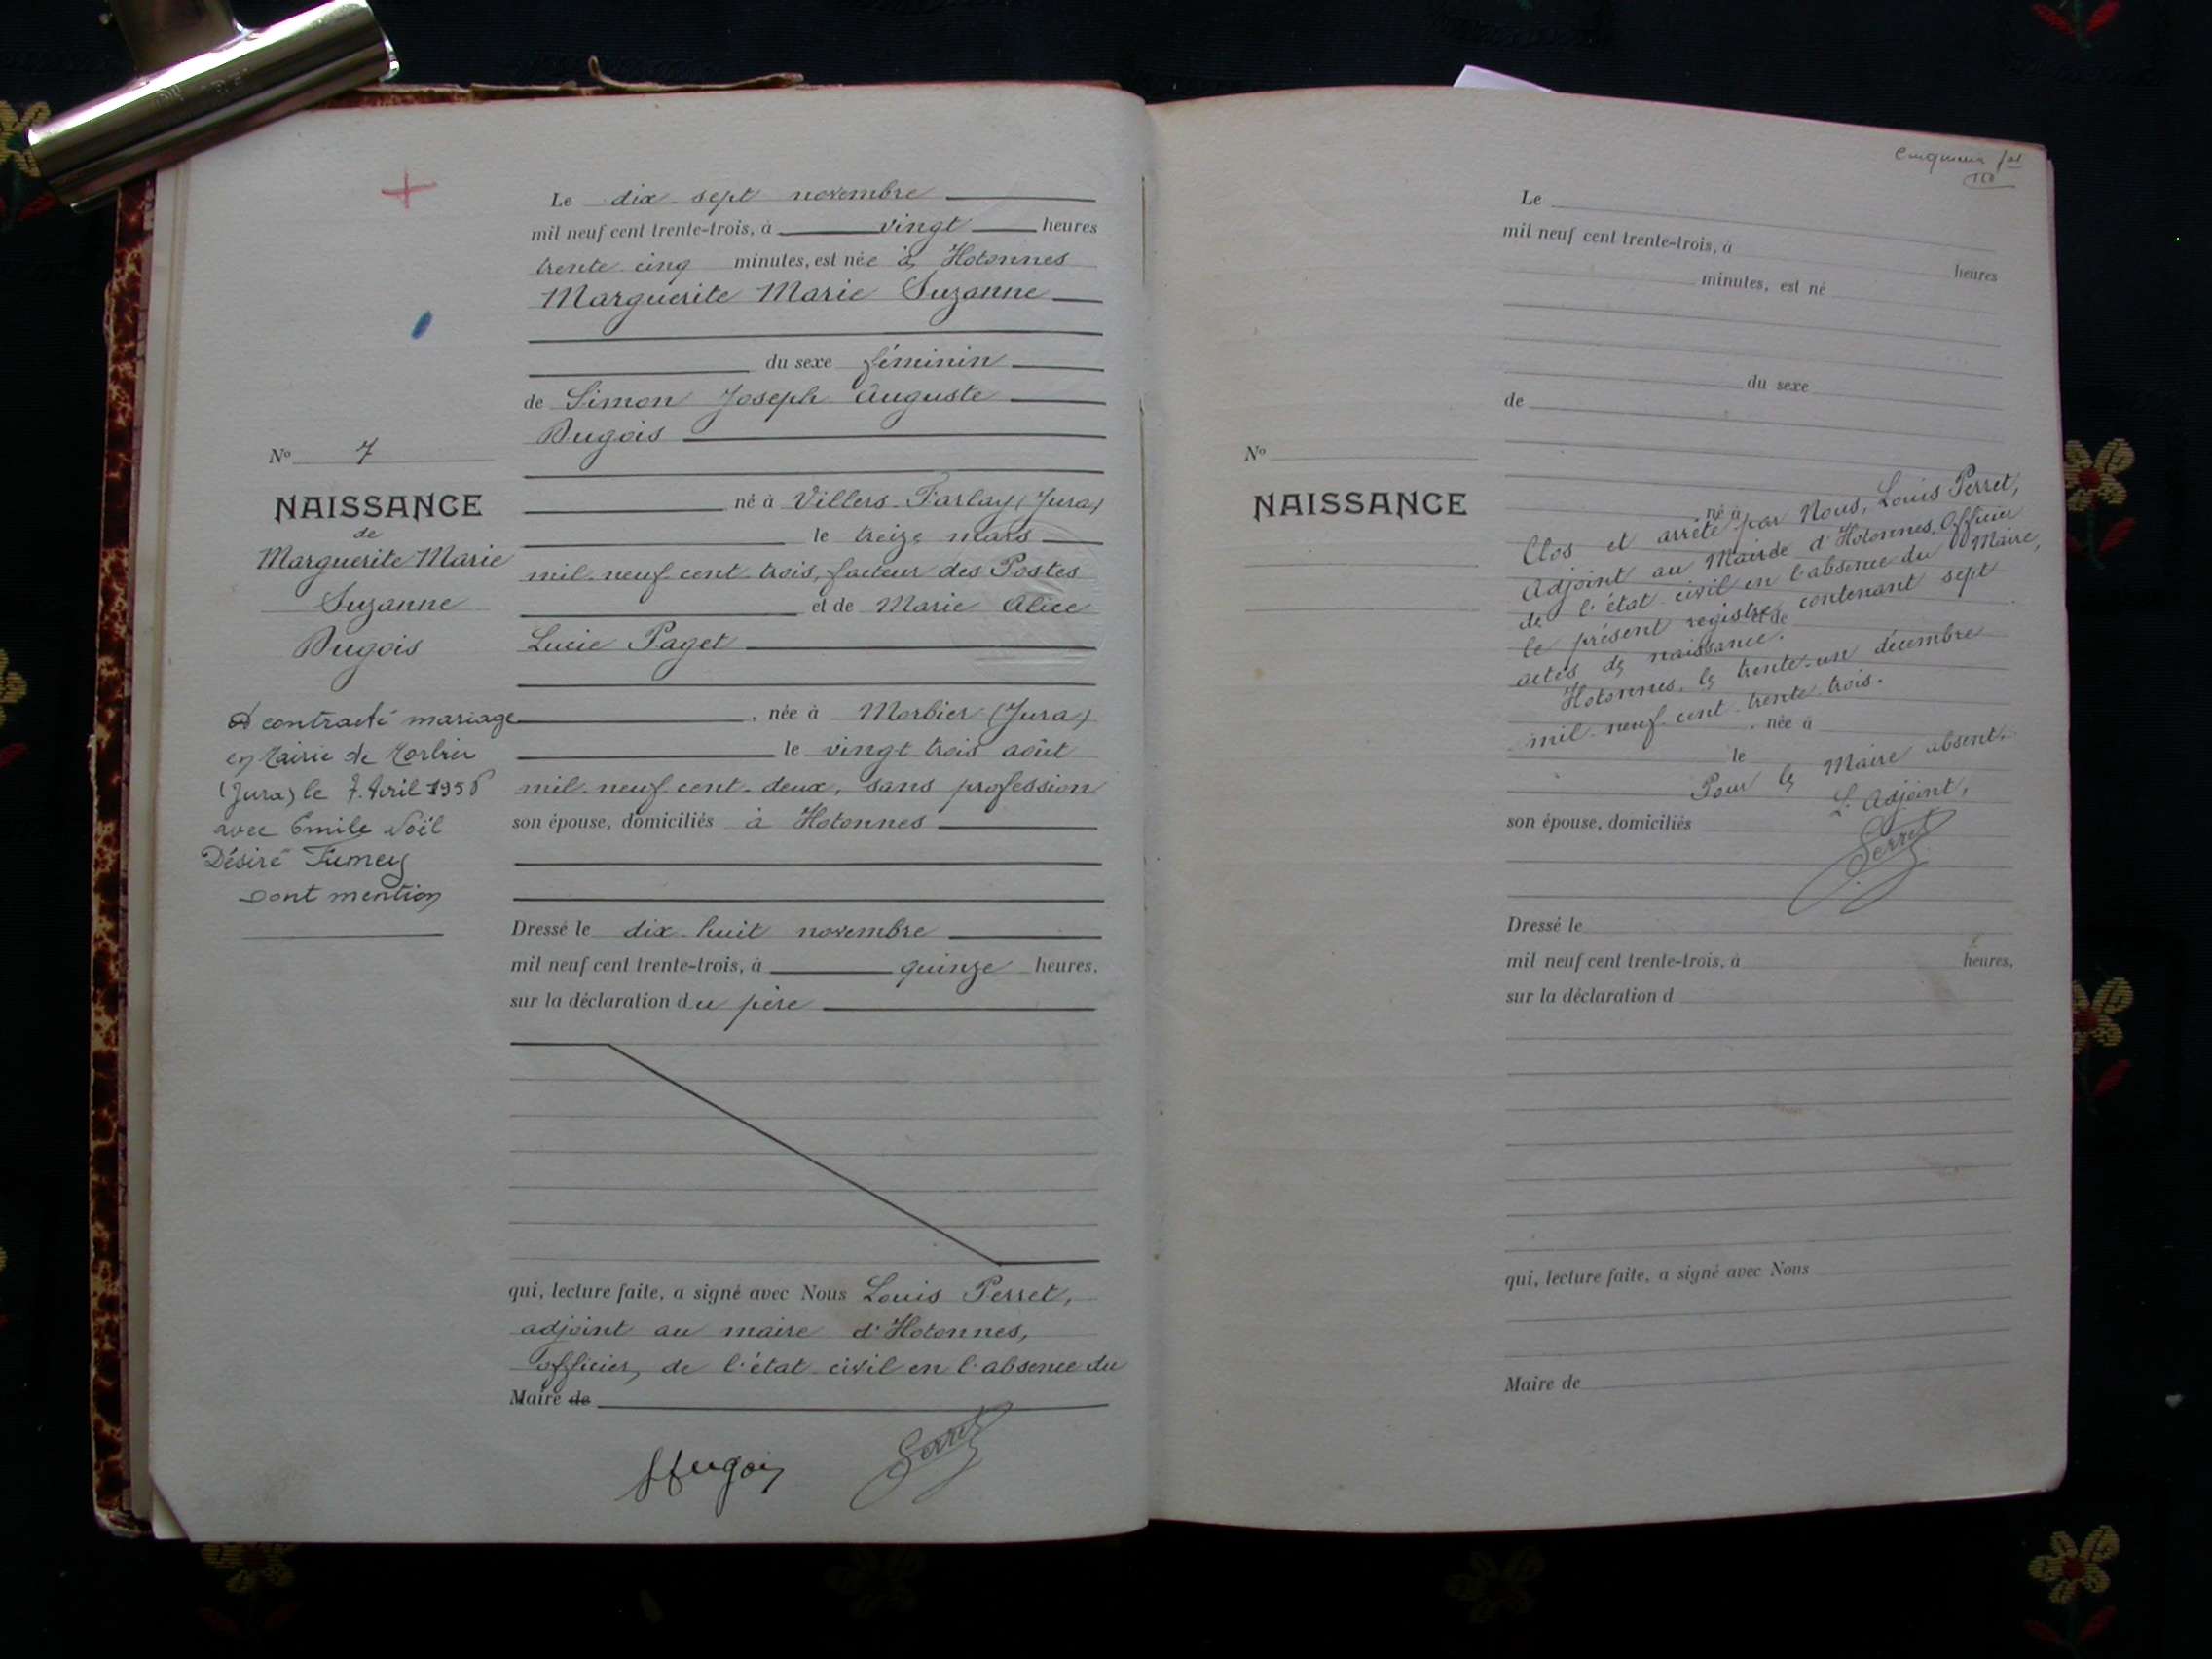 Le dix-sept novembre
mil neuf cent trente-trois, à vingt heures
trente cinq minutes, est née à Hotonnes
Marguerite Marie Suzanne
du sexe féminin
de Simon Joseph Auguste
Dugois
né à Villers-Farlay (Jura)
le treize mars
mil neuf cent trois, facteur des Postes
et de Marie Alice
Lucie Paget
, née à Morbier (Jura)
le vingt trois août
mil neuf cent deux, sans profession
son épouse, domiciliés à Hotonnes
Dressé le dix-huit novembre
mil neuf cent trente-trois, à quinze heures,
sur la déclaration du père
qui, lecture faite, a signé avec Nous Louis Perret,
adjoint au maire d'Hotonnes,
officier de l'état civil en l'absence du
Maire de
SDugois Perret
No 7
NAISSANCE
de
Marguerite Marie
Suzanne
Dugois
A contracté mariage
en Mairie de Morbier
(Jura) le 7 Avril
avec Emile Noël
Désiré Fumey
Dont mention
Le
mil neuf cent trente-trois, à
heures
minutes, est né
du sexe
de
No
NAISSANCE
, né à
Clos et arrêté par Nous, Louis Perret,
Adjoint au Maire de d'Hotonnes, Officier
de l'état civil en l'absence du Maire,
le présent registre contenant sept
et de
actes de naissance.
Hotonnes, le trente-un décembre
mil neuf cent trente trois.
, née à
le
Pour le Maire absent.
L'Adjoint,
son épouse, domiciliés
Perret
Dressé le
mil neuf cent trente-trois, à heures,
sur la déclaration d
qui, lecture faite, a signé avec Nous
Maire de